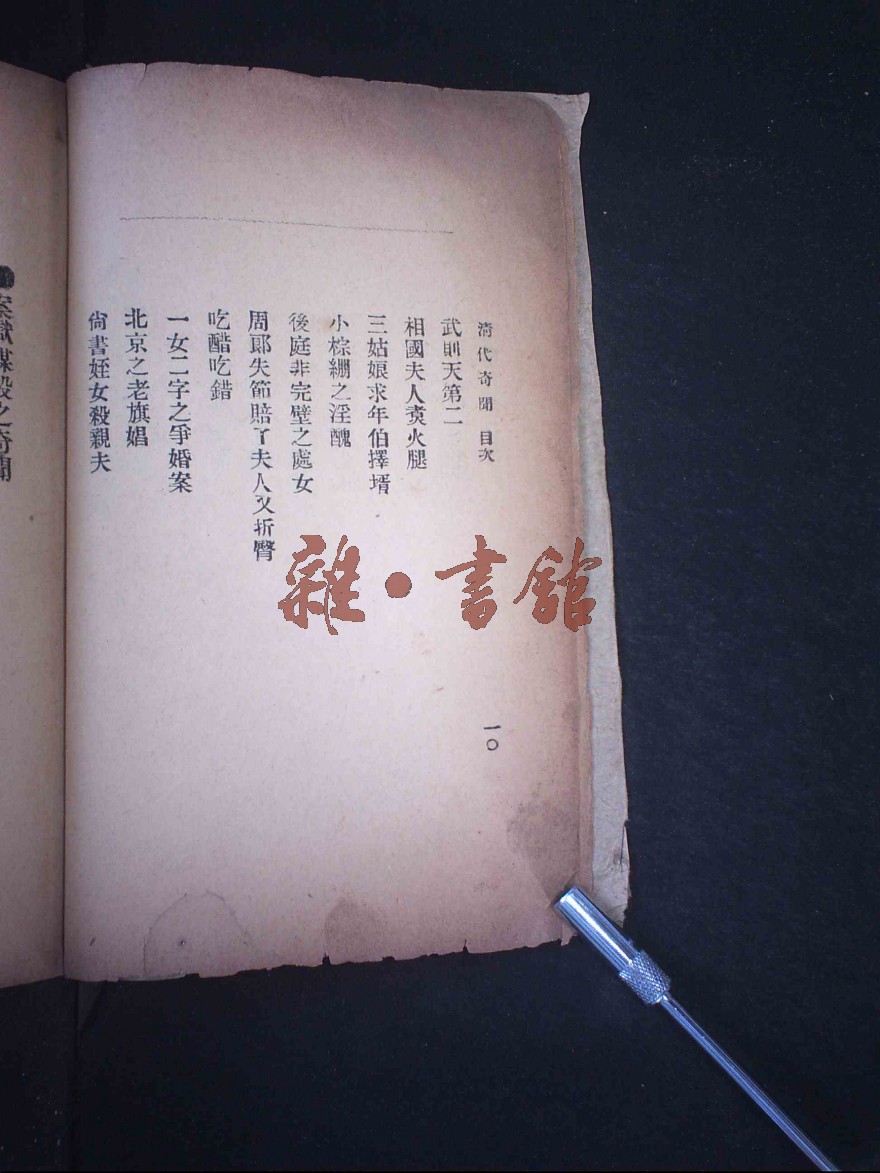 清代奇聞 目次
武則天第二
相國夫人煑火腿
三姑娘求年伯擇壻
小棕綳之淫醜
後庭非完璧之處女
周郞失節賠了夫人又折臀
吃醋吃錯
一女二字之爭婚案
北京之老旗娼
尙書姪女殺親夫
一〇
雜·書館
之奇聞